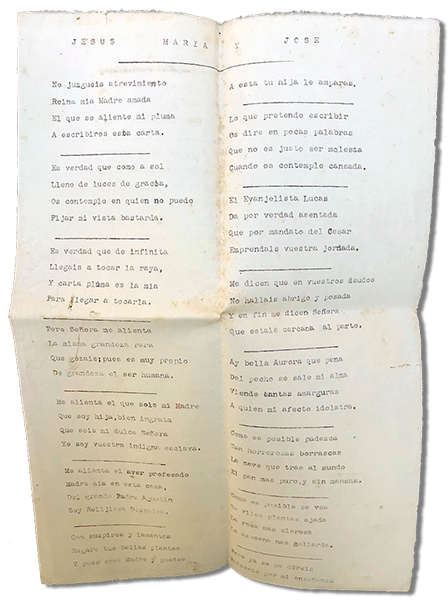 JESUS MARIA Y JOSE
No juzgueis atrevimiento
Reina mia Madre amada
El que se aliente mi pluma
A escribiros esta carta.
Es verdad que como a sol
Lleno de luces de gracia,
Os contemplo en quien no puedo
Fijar mi vista bastarda.
Es verdad que de infinita
Llegais a tocar la raya,
Y carta pluma es la mia
Para llegar a tocarla.
Pero Señora me alienta
La misma grandeza rara
Que gozais; pues es muy propio
De grandeza el ser humana.
Me alienta el que seis mi Madre
Que soy hija, bien ingrata
Que seis mi dulce Señora
Yo soy vuestra indigna esclava.
Me alienta el aver profesado
Madre mia en esta casa,
Del grande Padre Agustin
Soy Relijiosa
Con suspiros y lamentos
Regare tus bellas plantas
Y pues eres Madre y puedes
A esta tu hija le amparas.
Lo que pretendo escribir
Os dire en pocas palabras
Que no es justo ser molesta
Cuando os contemplo cansada.
El Evanjelista Lucas
Da por verdad asentada
Que por mandato del Cesar
Emprendais vuestra jornada.
Me dicen que en vuestros deudos
No hallais abrigo y posada
Y en fin me dicen Señora
Que estais cercana al parto.
Ay bella Aurora que pena
Del pecho se sale mi alma
Viendo tantas amarguras
A quien mi afecto idolatra.
Como es posible padezca
Tan horrorosas borrascas
La nave que trae al mundo
El pan mas puro, y sin mancha.
Como es posible se vea
De viles plantas ajada
La rosa mas olerosa
La azucena mas gallarda.
Pero ya se me direis
por mi enseñanza